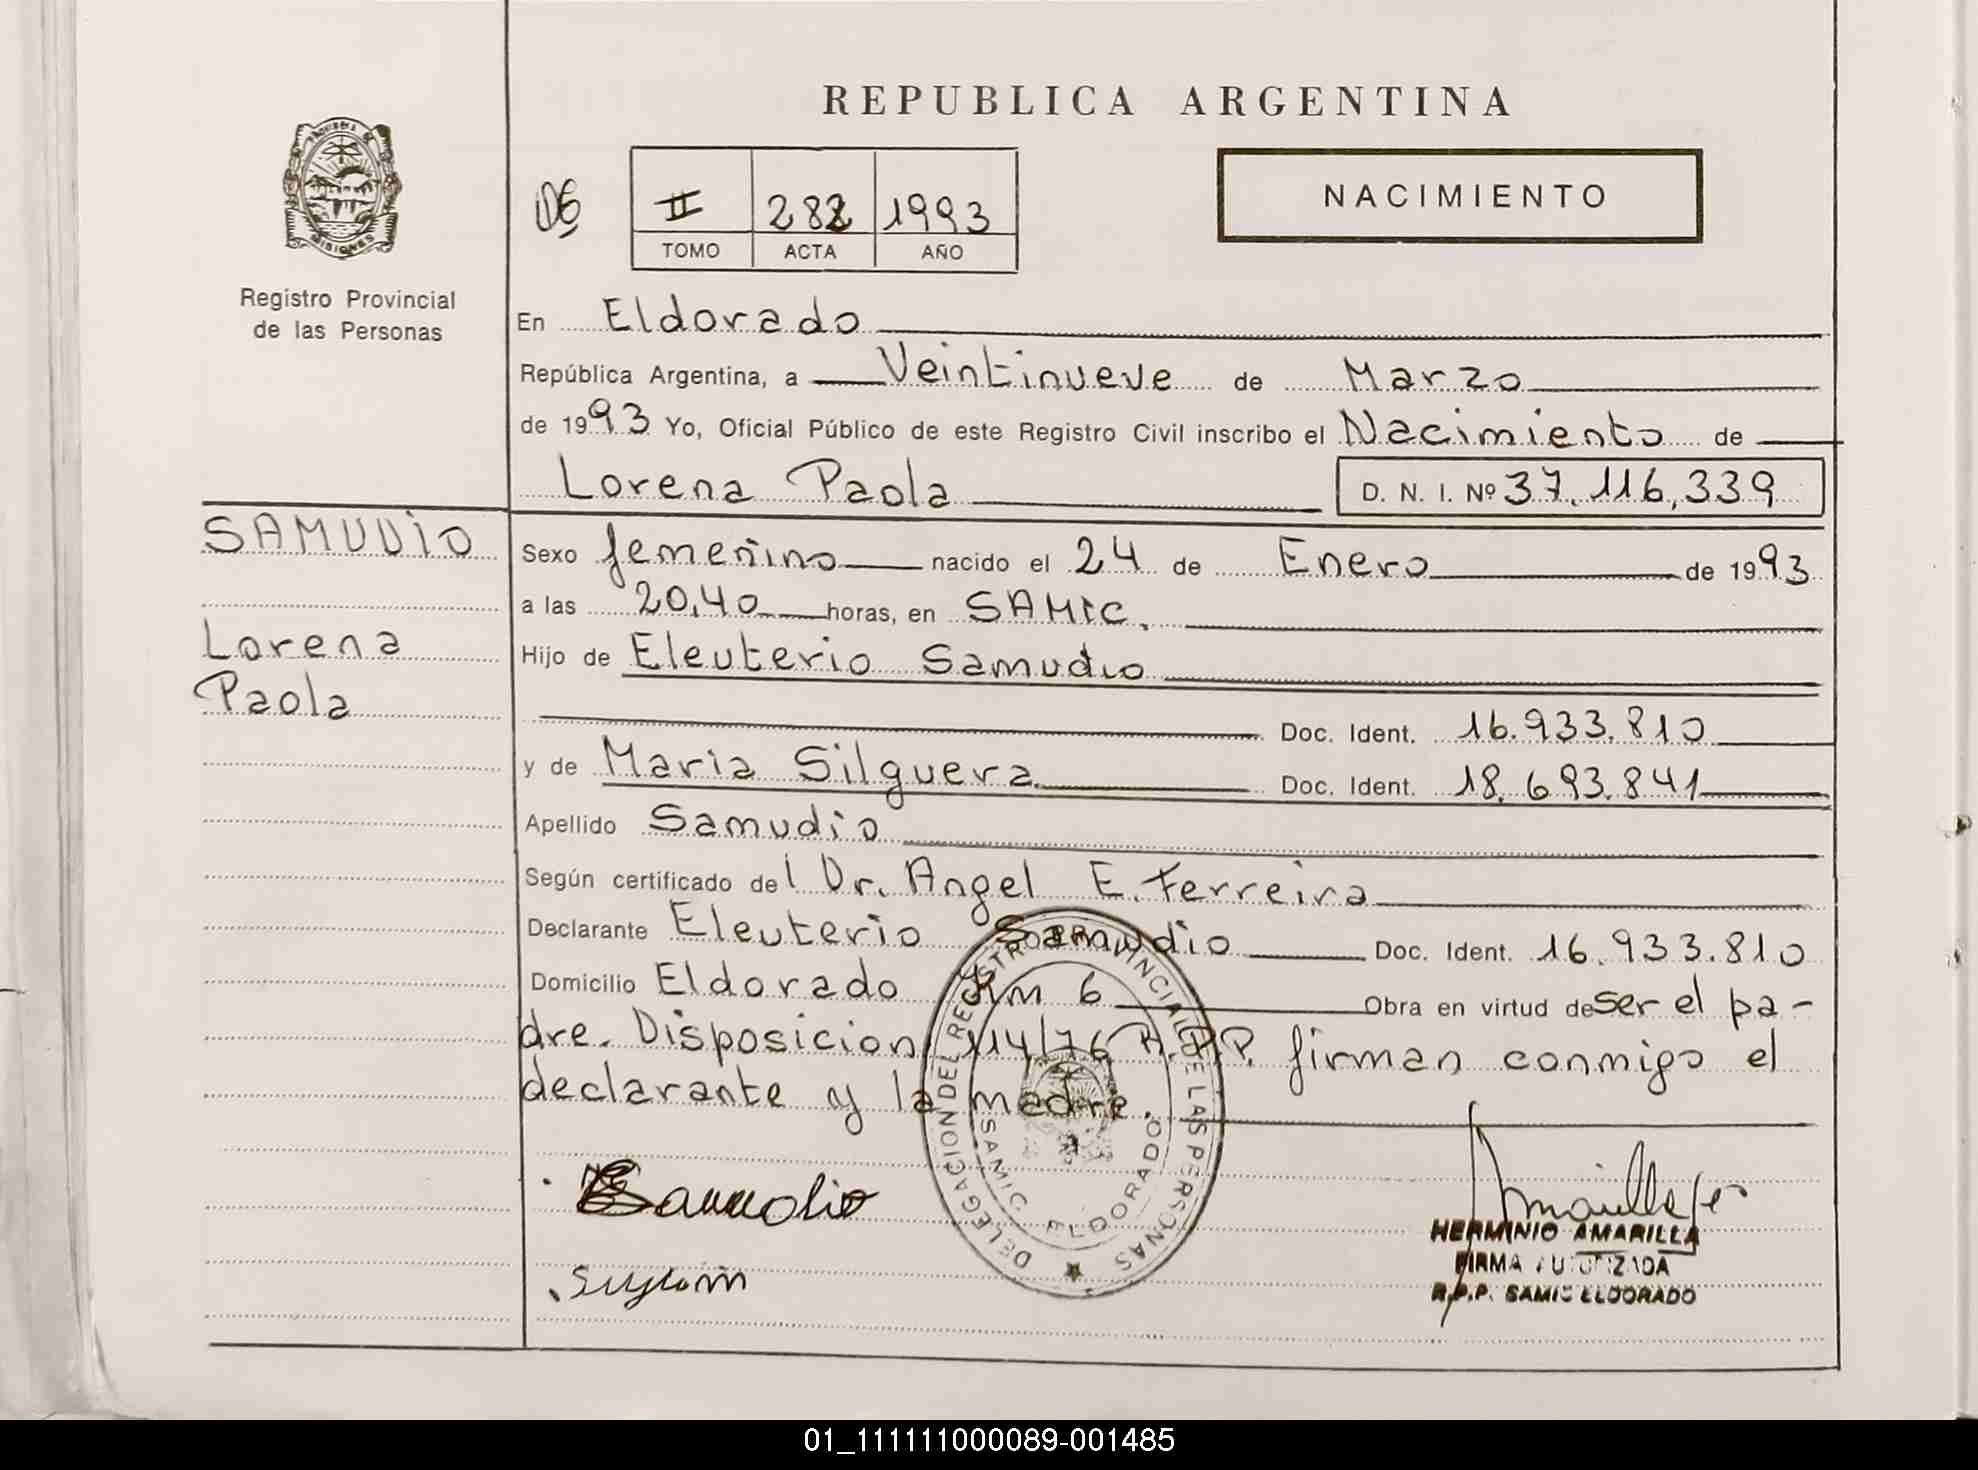 REPUBLICA ARGENTINA
NACIMIENTO
DE
II 282 1993
TOMO ACTA AÑO
PROVINCIA DE
MISIONES
Registro Provincial
de las Personas
En Eldorado
República Argentina, a Veintinueve de Marzo
de 1993 Yo, Oficial Público de este Registro Civil inscribo el Nacimiento de
Lorena Paola D. N. I. Nº 37.116,339
SAMUDIO
Lorena
Paola
Sexo femenino nacido el 24 de Enero de 1993
a las 20,40 horas, en SAMIC.
Hijo de Eleuterio Samudio
Doc. Ident. 16.933.810
y de Maria Silguera Doc. Ident. 18.693.841
Apellido Samudio
Según certificado del Dr. Angel E. Ferreira
Declarante Eleuterio Samudio Doc. Ident. 16.933.810
Domicilio Eldorado Km 6 Obra en virtud de ser el pa-
dre. Disposicion 114/76 R.P.P. firman conmigo el
declarante y la madre.
DELEGACION DEL REGISTRO PROVINCIAL DE LAS PERSONAS
SAMIC ELDORADO
Samudio
HERMINIO AMARILLA
FIRMA AUTORIZADA
R.P.P. SAMIC ELDORADO
01_111111000089-001485